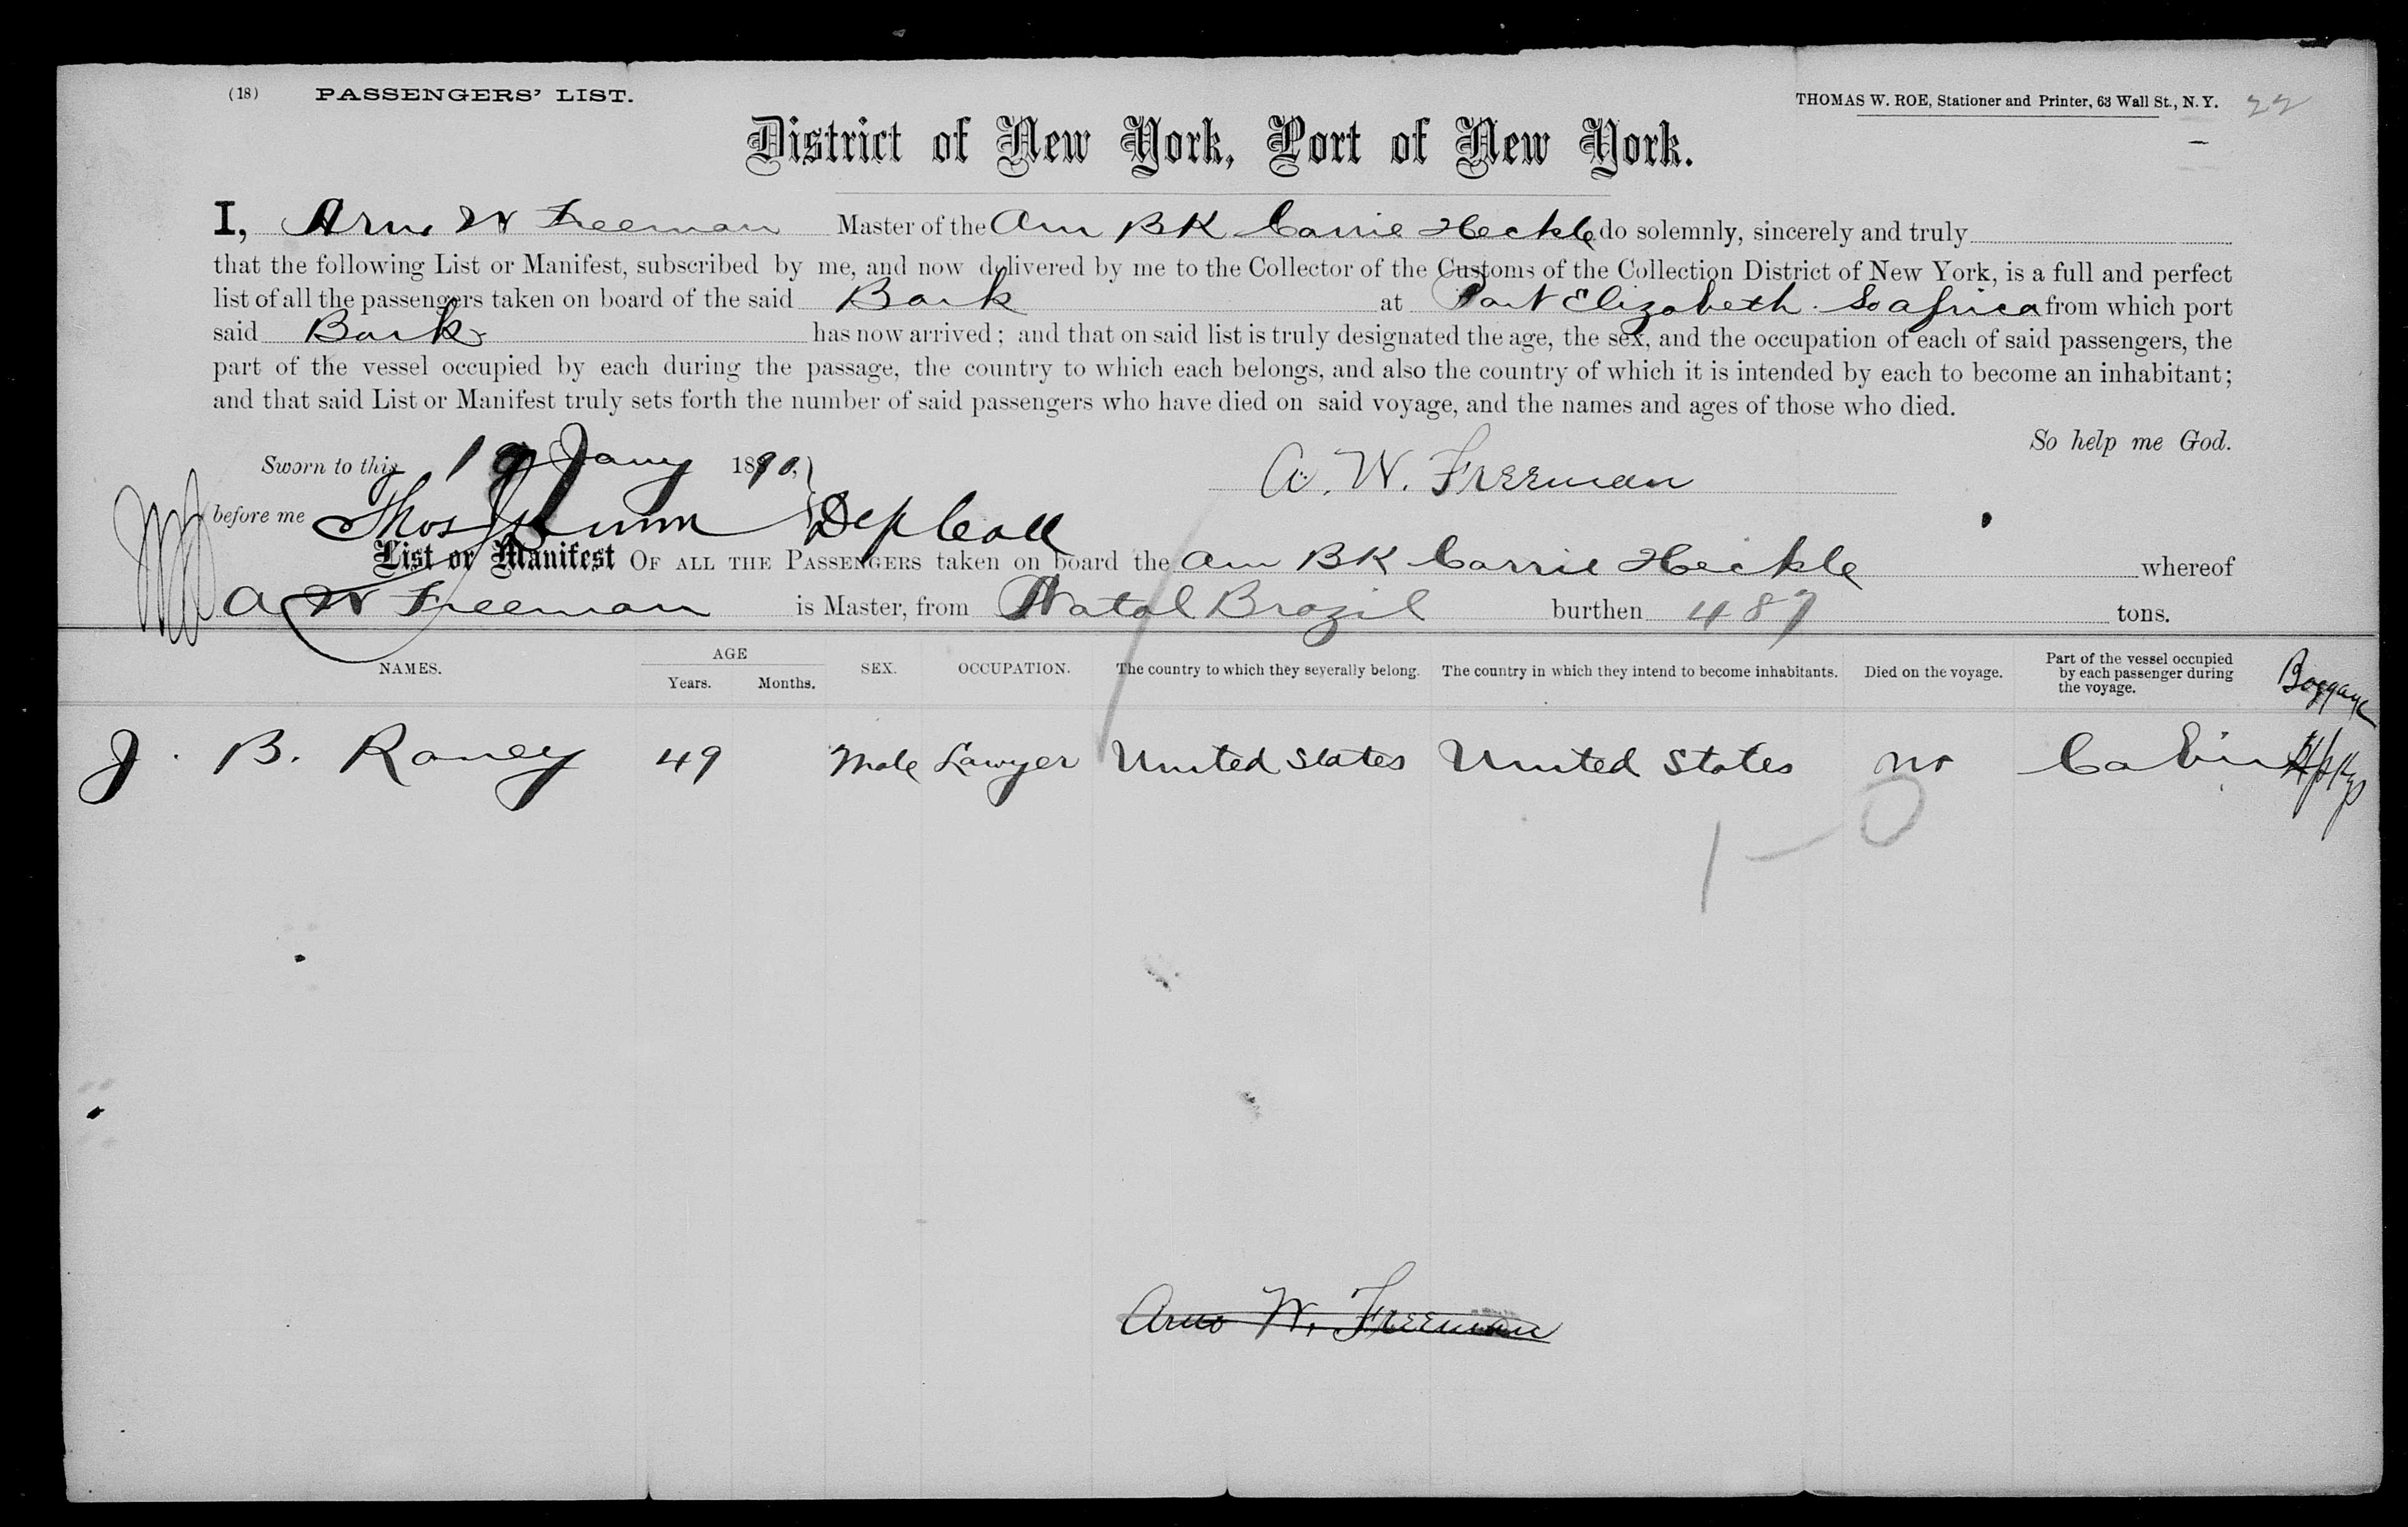 (18) PASSENGERS' LIST. THOMAS W. ROE, Stationer and Printer, 63 Wall St., N. Y. 22
District of New York, Port of New York.
I, Arno W Freeman Master of the Am BK Carrie Heckle do solemnly, sincerely and truly
that the following List or Manifest, subscribed by me, and now delivered by me to the Collector of the Customs of the Collection District of New York, is a full and perfect
list of all the passengers taken on board of the said Bark at Port Elizabeth. So africa from which port
said Bark has now arrived; and that on said list is truly designated the age, the sex, and the occupation of each of said passengers, the
part of the vessel occupied by each during the passage, the country to which each belongs, and also the country of which it is intended by each to become an inhabitant;
and that said List or Manifest truly sets forth the number of said passengers who have died on said voyage, and the names and ages of those who died.
So help me God.
Sworn to this Jany 1890, A. W. Freeman
before me Thos Dunn Dep Coll
List or Manifest OF ALL THE PASSENGERS taken on board the Am BK Carrie Heckle whereof
A W Freeman is Master, from Natal Brazil burthen 487 tons.
NAMES. AGE Years. Months. SEX. OCCUPATION. The country to which they severally belong. The country in which they intend to become inhabitants. Died on the voyage. Part of the vessel occupied by each passenger during the voyage. Baggage
J. B. Raney 49 Male Lawyer United States United States no Cabin
1 - 0
Arno W. Freeman